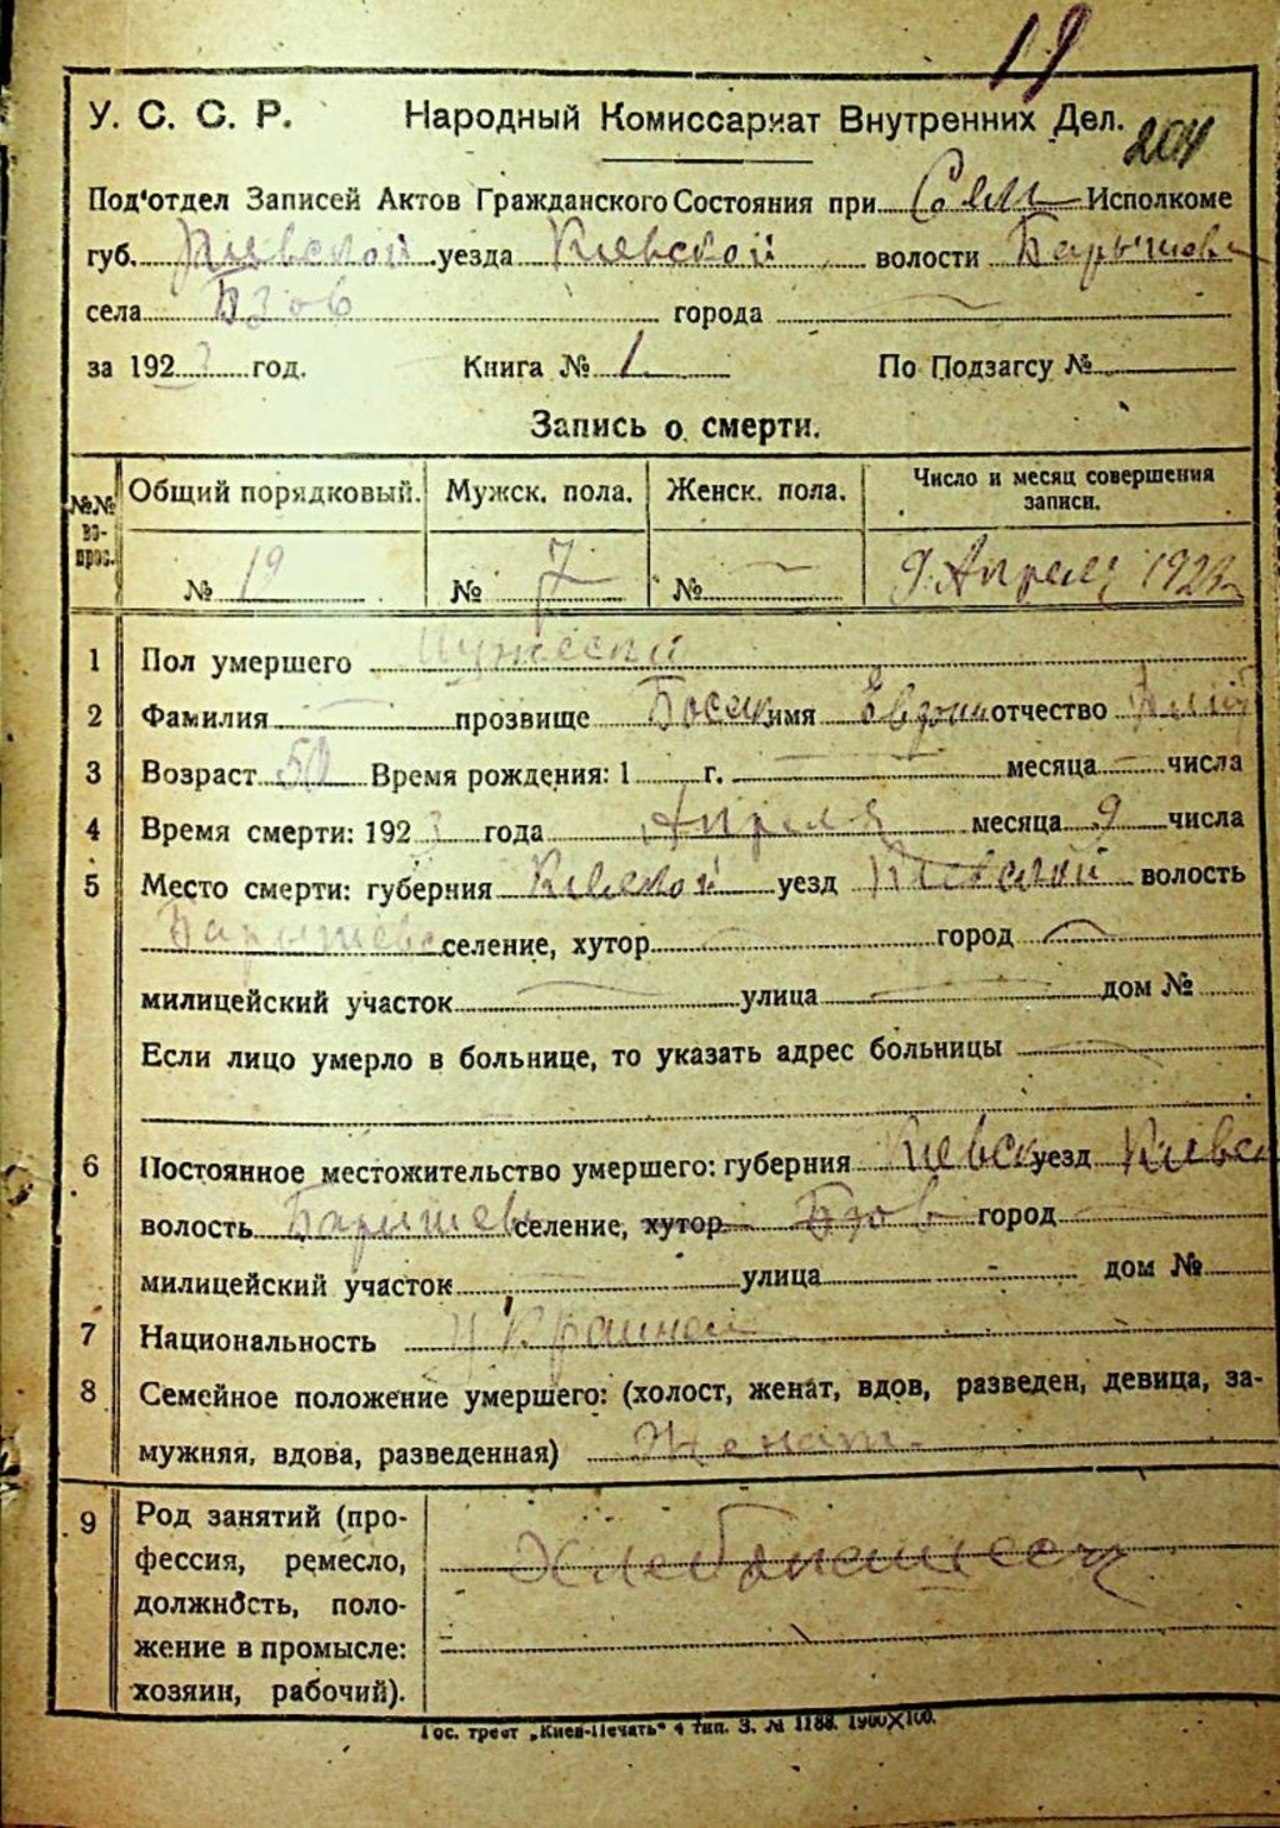 19
У. С. С. Р. Народный Комиссариат Внутренних Дел. 204
Под'отдел Записей Актов Гражданского Состояния при Исполкоме
губ. Киевской уезда Киевской волости Барышевс
села Бзов города
за 1923 год. Книга № 1 По Подзагсу №
Запись о смерти.
№№ во-прос. Общий порядковый. Мужск. пола. Женск. пола. Число и месяц совершения записи.
№ 19 № 7 № 9 Апреля 1923
1 Пол умершего Мужеский
2 Фамилия прозвище имя отчество
3 Возраст 50 Время рождения: 1 г. месяца числа
4 Время смерти: 1923 года Апреля месяца 9 числа
5 Место смерти: губерния Киевской уезд Киевской волость
Барышевс селение, хутор город
милицейский участок улица дом №
Если лицо умерло в больнице, то указать адрес больницы
6 Постоянное местожительство умершего: губерния Киевск уезд Киевск
волость Барышевс селение, хутор Бзов город
милицейский участок улица дом №
7 Национальность
8 Семейное положение умершего: (холост, женат, вдов, разведен, девица, за-
мужняя, вдова, разведенная) Женат
9 Род занятий (про-
фессия, ремесло, Хлебопашец
должность, поло-
жение в промысле:
хозяин, рабочий).
Гос. трест „Киев-Печать" 4 тип. З. № 1188. 1900X100.